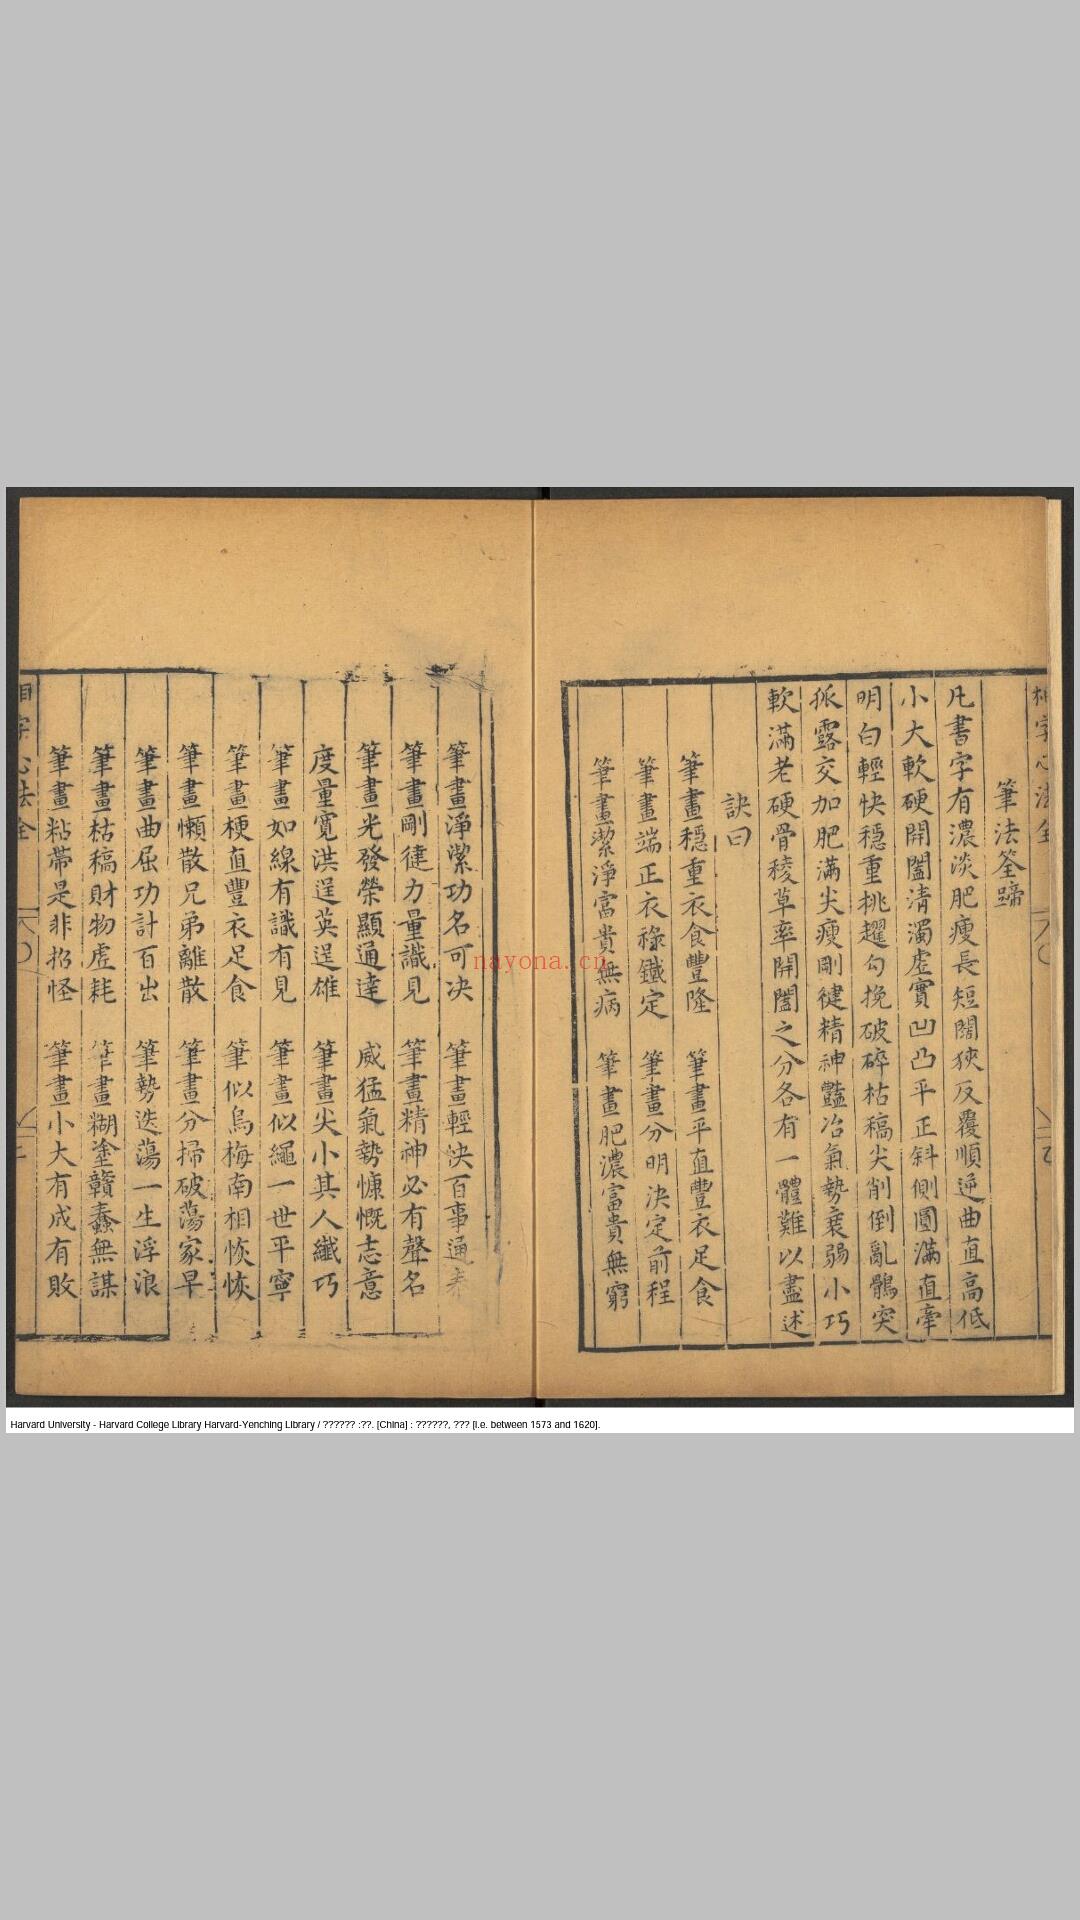 筆法筌蹄
凡書字有濃淡肥瘦長短闊狹反覆順逆曲直高低
小大軟硬開闔清濁虛實凹凸平正斜側圓滿直牽
明白輕快穩重挑趯勾挽破碎枯稿尖削倒亂鶻突
孤露交加肥滿尖瘦剛健精神豔冶氣勢衰弱小巧
軟滿老硬骨稜草率開闔之分各有一體難以盡述
訣曰
筆畫穩重衣食豐隆 筆畫平直豐衣足食
筆畫端正衣祿鐵定 筆畫分明決定前程
筆畫潔淨富貴無病 筆畫肥濃富貴無窮
筆畫淨潔功名可决 筆畫輕快百事通泰
筆畫剛健力量識見 筆畫精神必有聲名
筆畫光發榮顯通達 威猛氣勢慷慨志意
度量寬洪逞英逞雄 筆畫尖小其人纖巧
筆畫如線有識有見 筆畫似繩一世平寧
筆畫梗直豐衣足食 筆似烏梅南相恢恢
筆畫懶散兄弟離散 筆畫分掃破蕩家早
筆畫曲屈功計百出 筆勢迭蕩一生浮浪
筆畫枯稿財物虛耗 筆畫糊塗贛蠢無謀
筆畫粘帶是非招怪 筆畫小大有成有敗
相字心法全
nayona.cn
Harvard University - Harvard College Library Harvard-Yenching Library / ?????? :??. [China] : ??????, ??? [i.e. between 1573 and 1620].